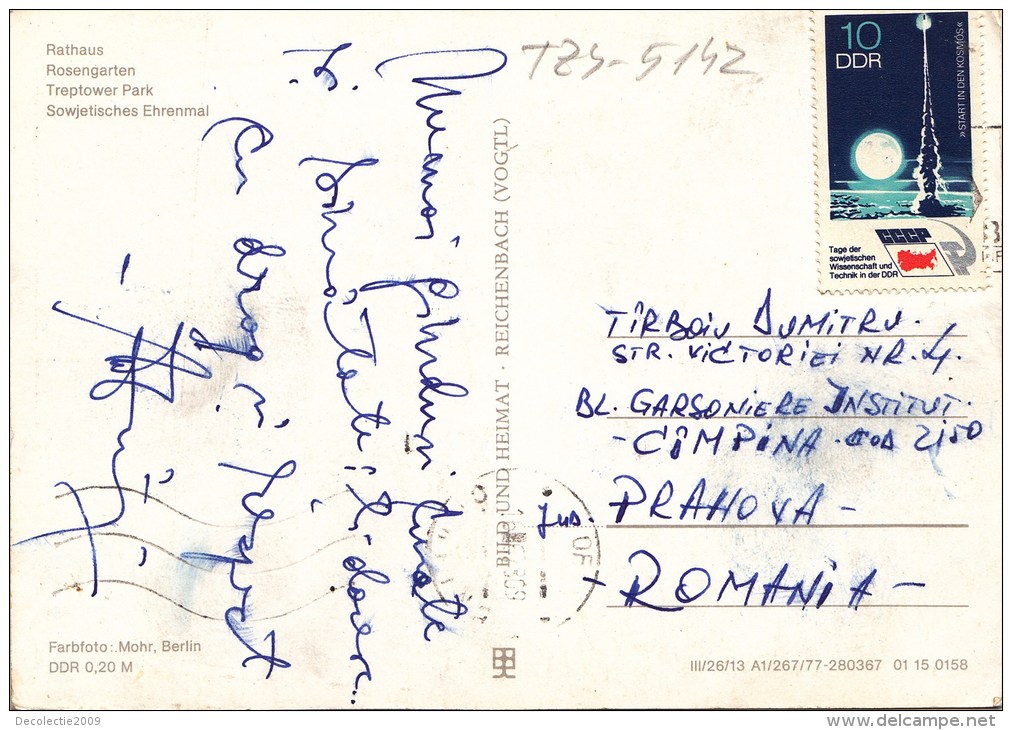 Rathaus
Rosengarten
Treptower Park
Sowjetisches Ehrenmal
TZS-5142
10
DDR
»START IN DEN KOSMOS«
CCCP
Tage der
sowjetischen
Wissenschaft und
Technik in der DDR
Numai gînduri curate
și sănătate! Vă doresc
cu drag și respect
BILD UND HEIMAT · REICHENBACH (VOGTL)
TÎRBOIU DUMITRU.
STR. VICTORIEI NR. 4.
BL. GARSONIERE INSTITUT.
-CÎMPINA. COD 2150
Jud. PRAHOVA-
ROMANIA-
Farbfoto: Mohr, Berlin
DDR 0,20 M
III/26/13 A1/267/77-280367 01 15 0158
Decolectie2009
www.delcampe.net